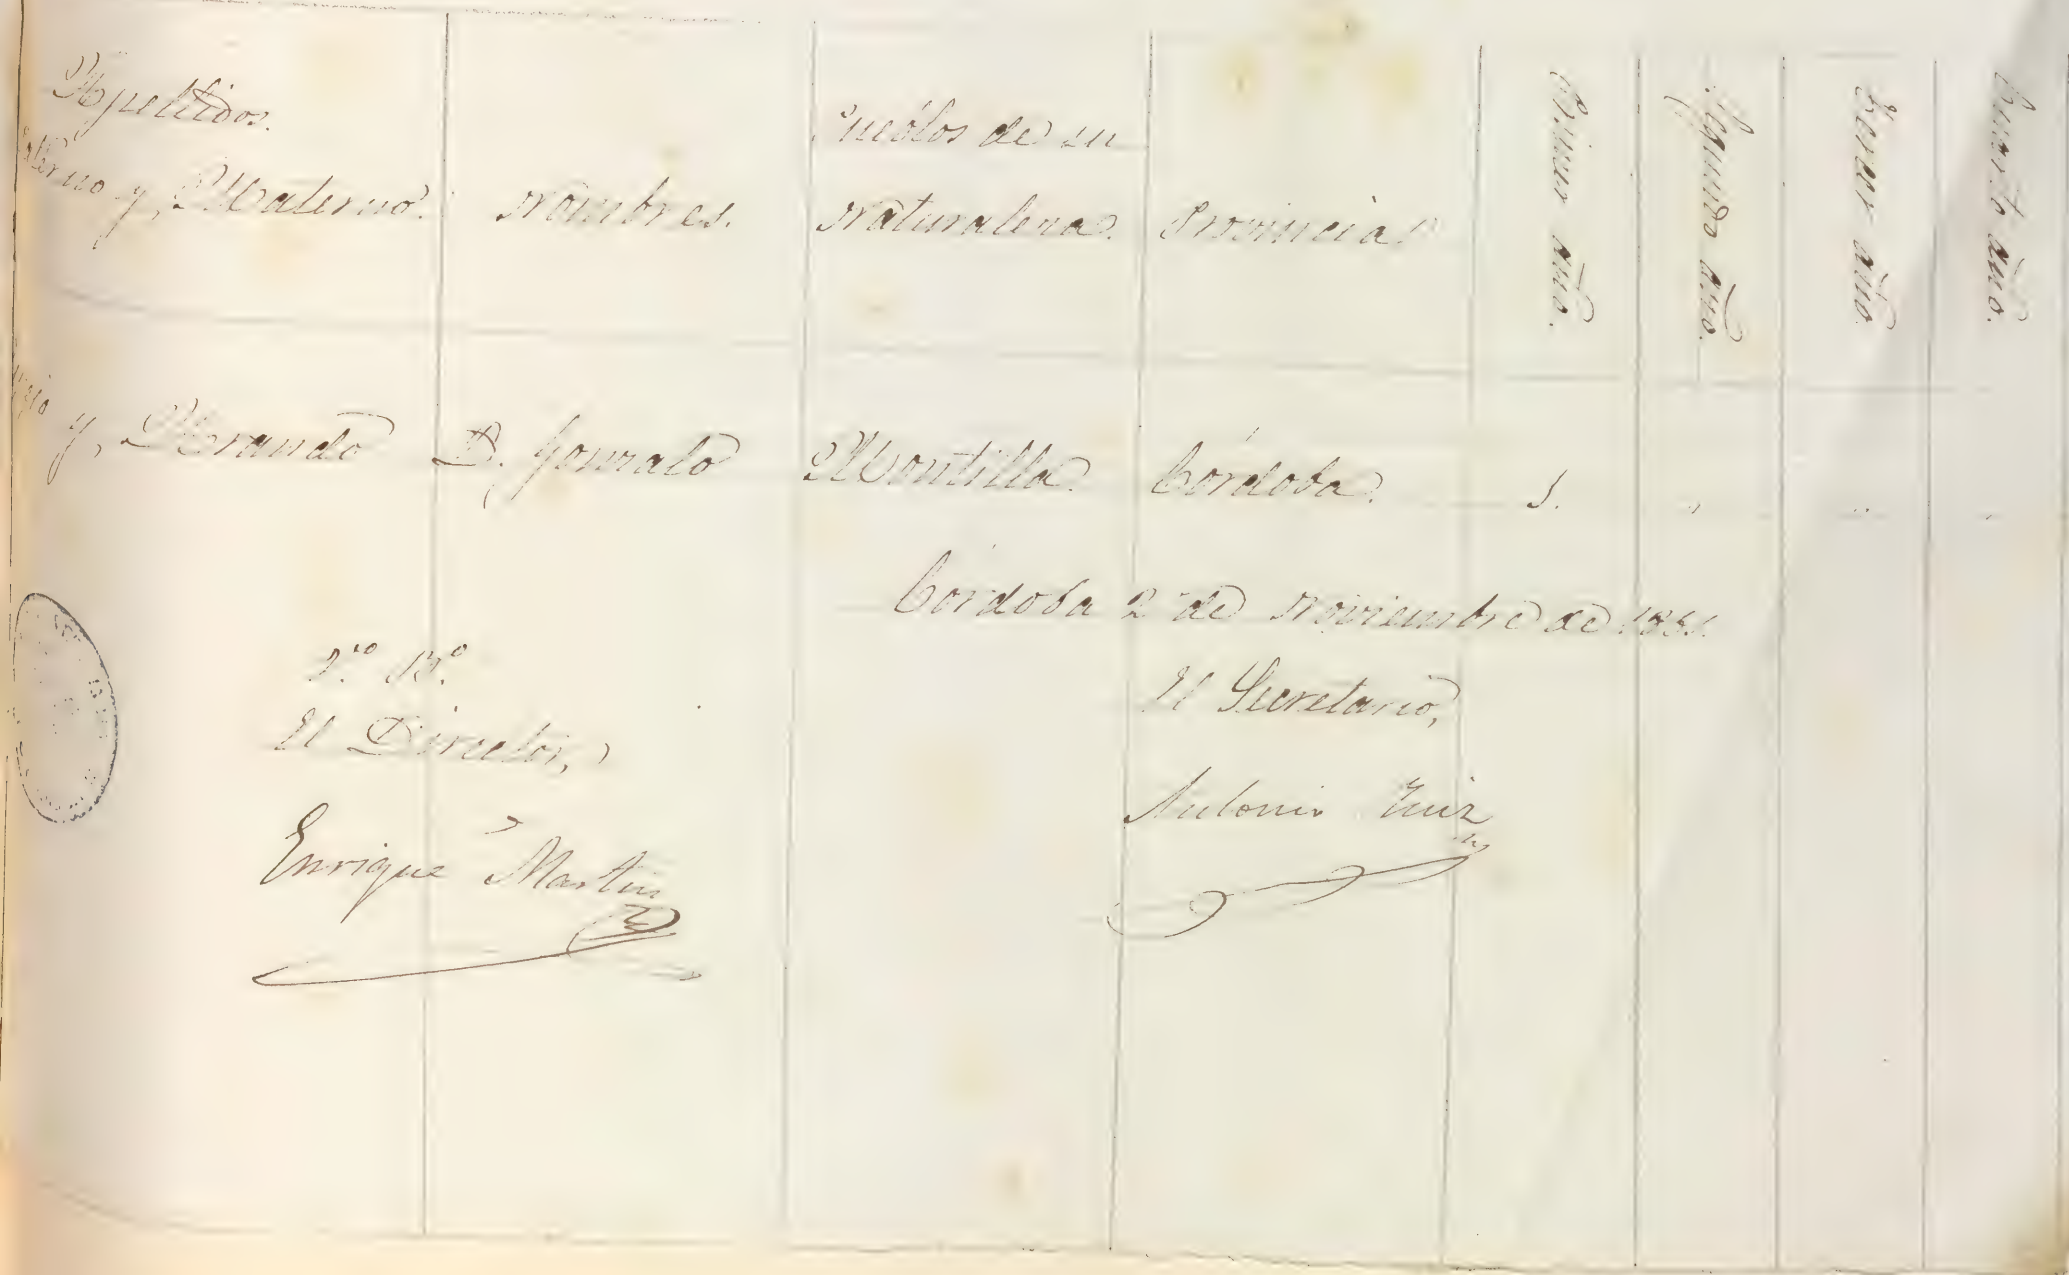 Apellidos.
y, Materno.
Nombres.
Pueblos de su
Naturaleza.
Provincia.
Primer año.
Segundo año.
Tercer año.
Cuarto año.
y,
D. Gonzalo
Montilla.
Córdoba.
1.
Córdoba 2 de Noviembre de
Vº. Bº.
El Director,
El Secretario,
Enrique Martin
Antonio Ruiz